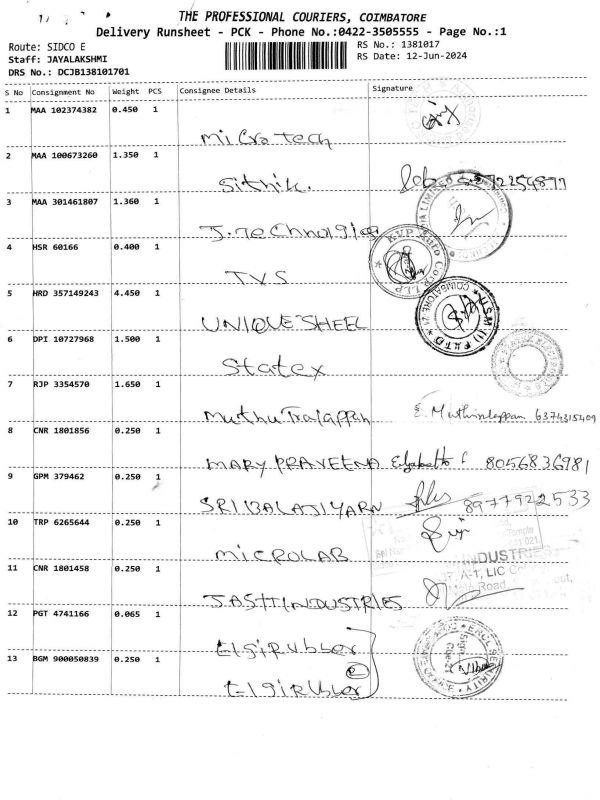 THE PROFESSIONAL COURIERS, COIMBATORE
Delivery Runsheet - PCK - Phone No.:0422-3505555 - Page No.:1
Route: SIDCO E
RS No.: 1381017
Staff: JAYALAKSHMI
RS Date: 12-Jun-2024
DRS No.: DCJB138101701
S No Consignment No Weight PCS Consignee Details Signature
1 MAA 102374382 0.450 1
Microtech
2 MAA 100673260 1.350 1
Sithik.
3 MAA 301461807 1.360 1
J.Technologies
4 HSR 60166 0.400 1
TVS
5 HRD 357149243 4.450 1
UNIQUE SHEEL
6 DPI 10727968 1.500 1
Statex
7 RJP 3354570 1.650 1
6374315409
8 CNR 1801856 0.250 1
MARY PRAVEENA 8056836981
9 GPM 379462 0.250 1
SRI BALAJI YARN 8977922533
10 TRP 6265644 0.250 1
MICROLAB
INDUSTRIES
11 CNR 1801458 0.250 1
A-1, LIC
Road,
JASTI INDUSTRIES
12 PGT 4741166 0.065 1
Elgirubber
13 BGM 900050839 0.250 1
Elgirubber